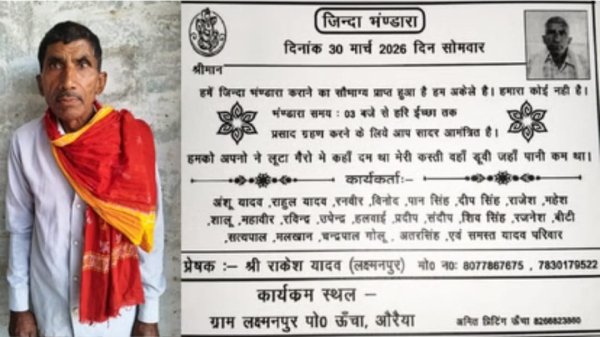 जिन्दा भंण्डारा
दिनांक 30 मार्च 2026 दिन सोमवार
श्रीमान
हमें जिन्दा भण्डारा कराने का सौभाग्य प्राप्त हुआ है हम अकेले है। हमारा कोई नही है।
भंण्डारा समय : 03 बजे से हरि ईच्छा तक
प्रसाद ग्रहण करने के लिये आप सादर आमंत्रित है।
हमको अपनो ने लूटा गैरो मे कहाँ दम था मेरी कस्ती वहाँ डूवी जहाँ पानी कम था।
कार्यकर्ताः-
अंशू यादव ,राहुल यादव ,रनवीर ,विनोद ,पान सिंह ,दीप सिंह ,राजेश ,महेश
,शालू ,महावीर ,रविन्द्र ,उपेन्द्र ,हलवाई ,प्रदीप ,संदीप ,शिव सिंह ,रजनेश ,बीटी
,सत्यपाल ,मलखान ,चन्द्रपाल गोलू , अतरसिंह ,एवं समस्त यादव परिवार
प्रेषक :– श्री राकेश यादव (लक्ष्मनपुर) मो0 न0: 8077867675 , 7830179522
कार्यकम स्थल –
ग्राम लक्ष्मनपुर पो0 ऊँचा, औरैया
अमित प्रिटिंग ऊँचा 8266823860